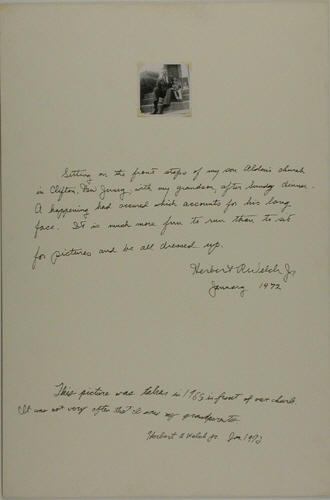 Sitting on the front steps of my son Alden's church
in Clifton, New Jersey, with my grandson, after Sunday dinner.
A happening had occured which accounts for his long
face. It is much more fun to run than to sit
for pictures and be all dressed up.
Herbert R. Welch Jr
January 1972
This picture was taken in 1965 in front of our church.
It was not very often that I saw my grandparents
Herbert Welch Jr. Jan 1972